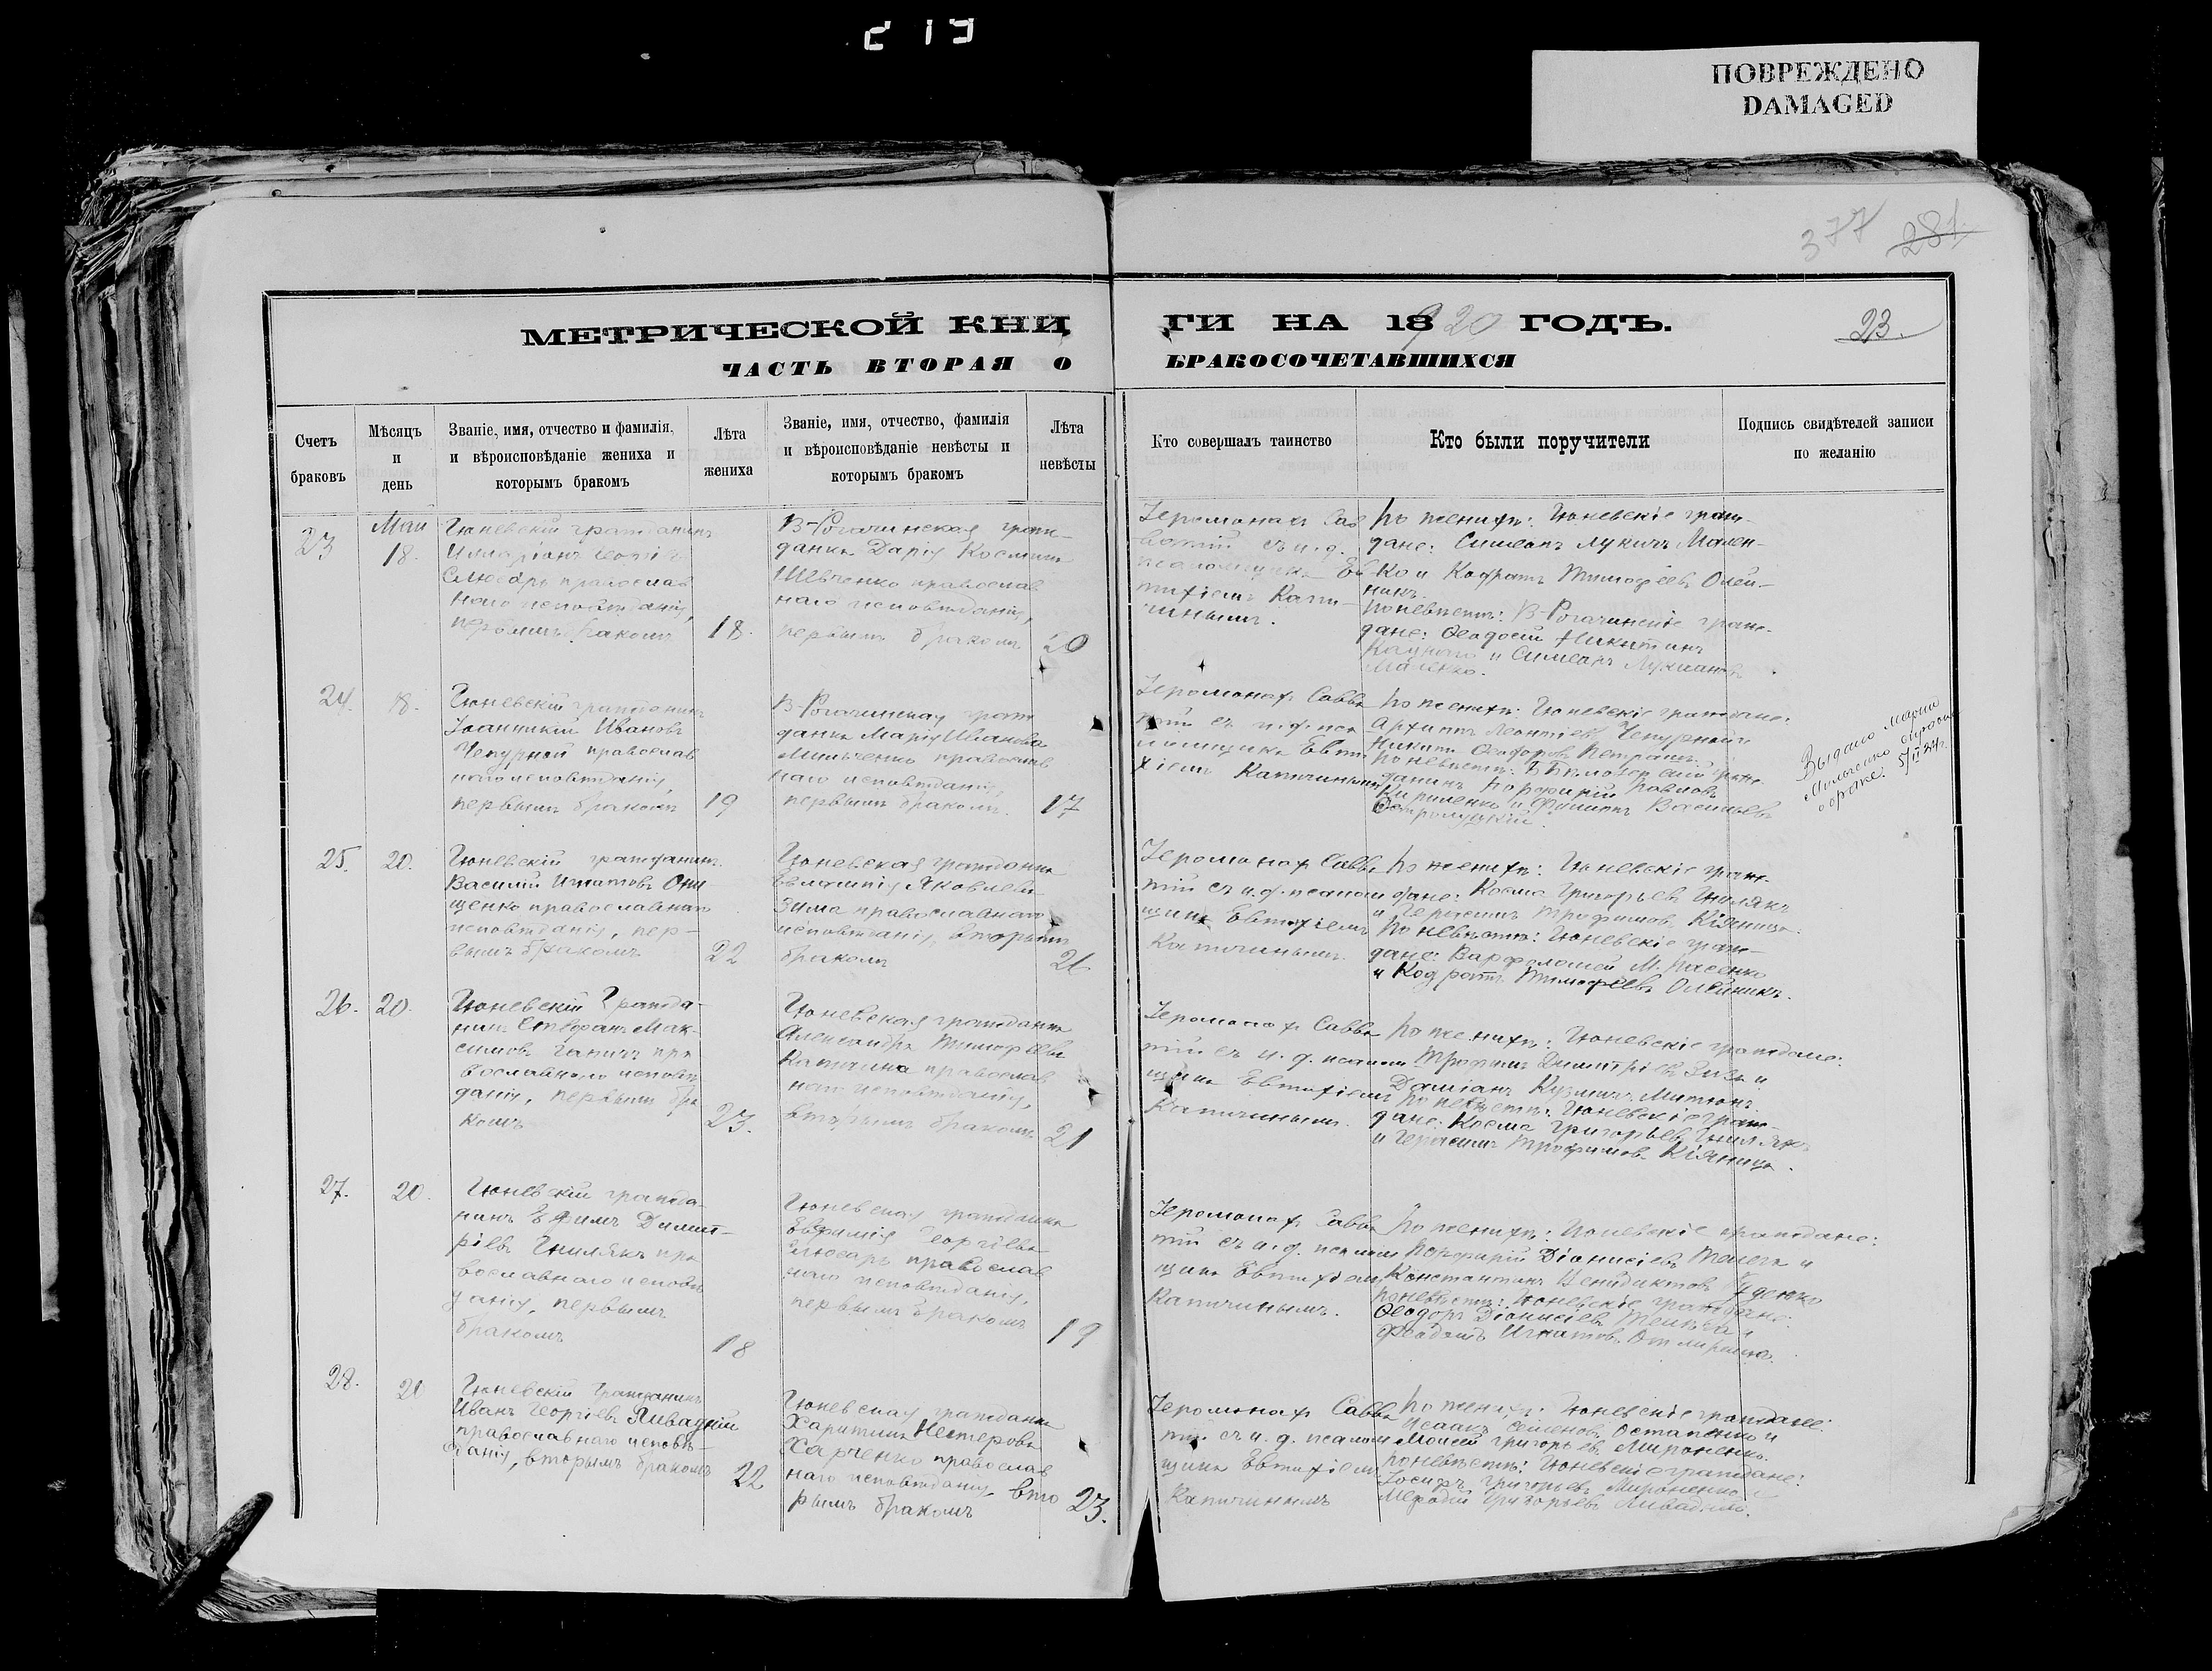 219
ПОВРЕЖДЕНО
DAMAGED
377 281
МЕТРИЧЕСКОЙ КНИГИ НА 1920 ГОДЪ.
23.
ЧАСТЬ ВТОРАЯ О БРАКОСОЧЕТАВШИХСЯ
Счетъ браковъ
Мѣсяцъ и день
Званіе, имя, отчество и фамилія, и вѣроисповѣданіе жениха и которымъ бракомъ
Лѣта жениха
Званіе, имя, отчество, фамилія и вѣроисповѣданіе невѣсты и которымъ бракомъ
Лѣта невѣсты
Кто совершалъ таинство
Кто были поручители
Подпись свидѣтелей записи по желанію
23
Маи
18.
Гюневскій гражданинъ
Слюсарь православ
наго исповѣданія,
первымъ бракомъ
18.
В-Рогачинская граж-
данка Дарія Космина
Шевченко православ
наго исповѣданія,
первымъ бракомъ
20
Іеромонахъ Сав
ватій съ и. д.
псаломщика Ев
тихіемъ Капи-
чинымъ.
По женихѣ: Гюневскіе граж-
дане: Симеонъ Лукичъ Мален-
ко и Кодратъ Тимофеевъ Олей-
никъ.
По невѣстѣ: В-Рогачинскіе граж-
дане: Ѳеодосій Никитинъ
и Симеонъ
24.
18.
Гюневскій гражданинъ
Іоанникій Ивановъ
Чепурной православ
наго исповѣданія,
первымъ бракомъ
19
В-Рогачинская граж
данка Марія Иванова
Мильченко православ
наго исповѣданія,
первымъ бракомъ.
17
Іеромонахъ Савва
тій съ и. д. пса
ломщика Евти
хіемъ Капичинымъ
По женихѣ: Гюневскіе граждане:
Архипъ Леонтіевъ Чепурной и
Никита Ѳеодоровъ Петрашъ.
По невѣстѣ:
данинъ Порфирій Павловъ
Кириленко и Филиппъ Васильевъ
Выдано Марии
Мильченко
о браке. 5/II 34 г.
25.
20.
Гюневскій гражданинъ
Василій Игнатовъ Они-
щенко православнаго
исповѣданія, пер-
вымъ бракомъ
22
Гюневская гражданка
Евлампія Яковлева
Зима православнаго
исповѣданія, вторымъ
бракомъ
21
Іеромонахъ Савва
тій съ и. д. псалом
щика Евтихіемъ
Капичинымъ.
По женихѣ: Гюневскіе граж-
дане: Косма Григорьевъ Гнилякъ
и Герасимъ Трофимовъ Кіяница.
По невѣстѣ: Гюневскіе граж-
дане: Варфоломей М. Пасенко
и Кодратъ Тимофеевъ Олейникъ.
26.
20.
Гюневскій Гражда-
нинъ Стефанъ Мак-
симовъ Ганичъ пра
вославнаго исповѣ
данія, первымъ бра
комъ
23.
Гюневская гражданка
Александра Тимофеева
православ
наго исповѣданія,
вторымъ бракомъ
21
Іеромонахъ Савва
тій съ и. д. псалом
щика Евтихіемъ
Капичинымъ.
По женихѣ: Гюневскіе граждане:
Трофимъ Димитріевъ Зизь и
Даміанъ Кузмичъ Митюнъ.
По невѣстѣ: Гюневскіе граж-
дане: Косма Григорьевъ Гнилякъ
и Герасимъ Трофимовъ Кіяница.
27.
20.
Гюневскій гражда-
нинъ Ефимъ Димит-
ріевъ Гнилякъ пра
вославнаго исповѣ
данія, первымъ
бракомъ
18
Гюневская гражданка
Евфимія Георгіева
Слюсарь православ
наго исповѣданія,
первымъ бракомъ
19
Іеромонахъ Савва
тій съ и. д. псалом
щика Евтихіемъ
Капичинымъ.
По женихѣ: Гюневскіе граждане:
Порфирій Діонисіевъ Телега и
Константинъ Венедиктовъ Гуденко
По невѣстѣ: Гюневскіе граждане:
Ѳеодоръ Діонисіевъ Телега и
28.
20
Гюневскій Гражданинъ
Иванъ Георгіевъ Ливадній
православнаго исповѣ-
данія, вторымъ бракомъ
22
Гюневская гражданка
Харитина Нестерова
Харченко православ
наго исповѣданія, вто
рымъ бракомъ
23.
Іеромонахъ Савва
тій съ и. д. псалом
щика Евтихіемъ
Капичинымъ
По женихѣ: Гюневскіе граждане:
Исаакъ Семеновъ Остапенко и
Моисей Григорьевъ Мироненко.
По невѣстѣ: Гюневскіе граждане:
Іосифъ Григорьевъ Мироненко и
Мефодій Григорьевъ Ливадній.